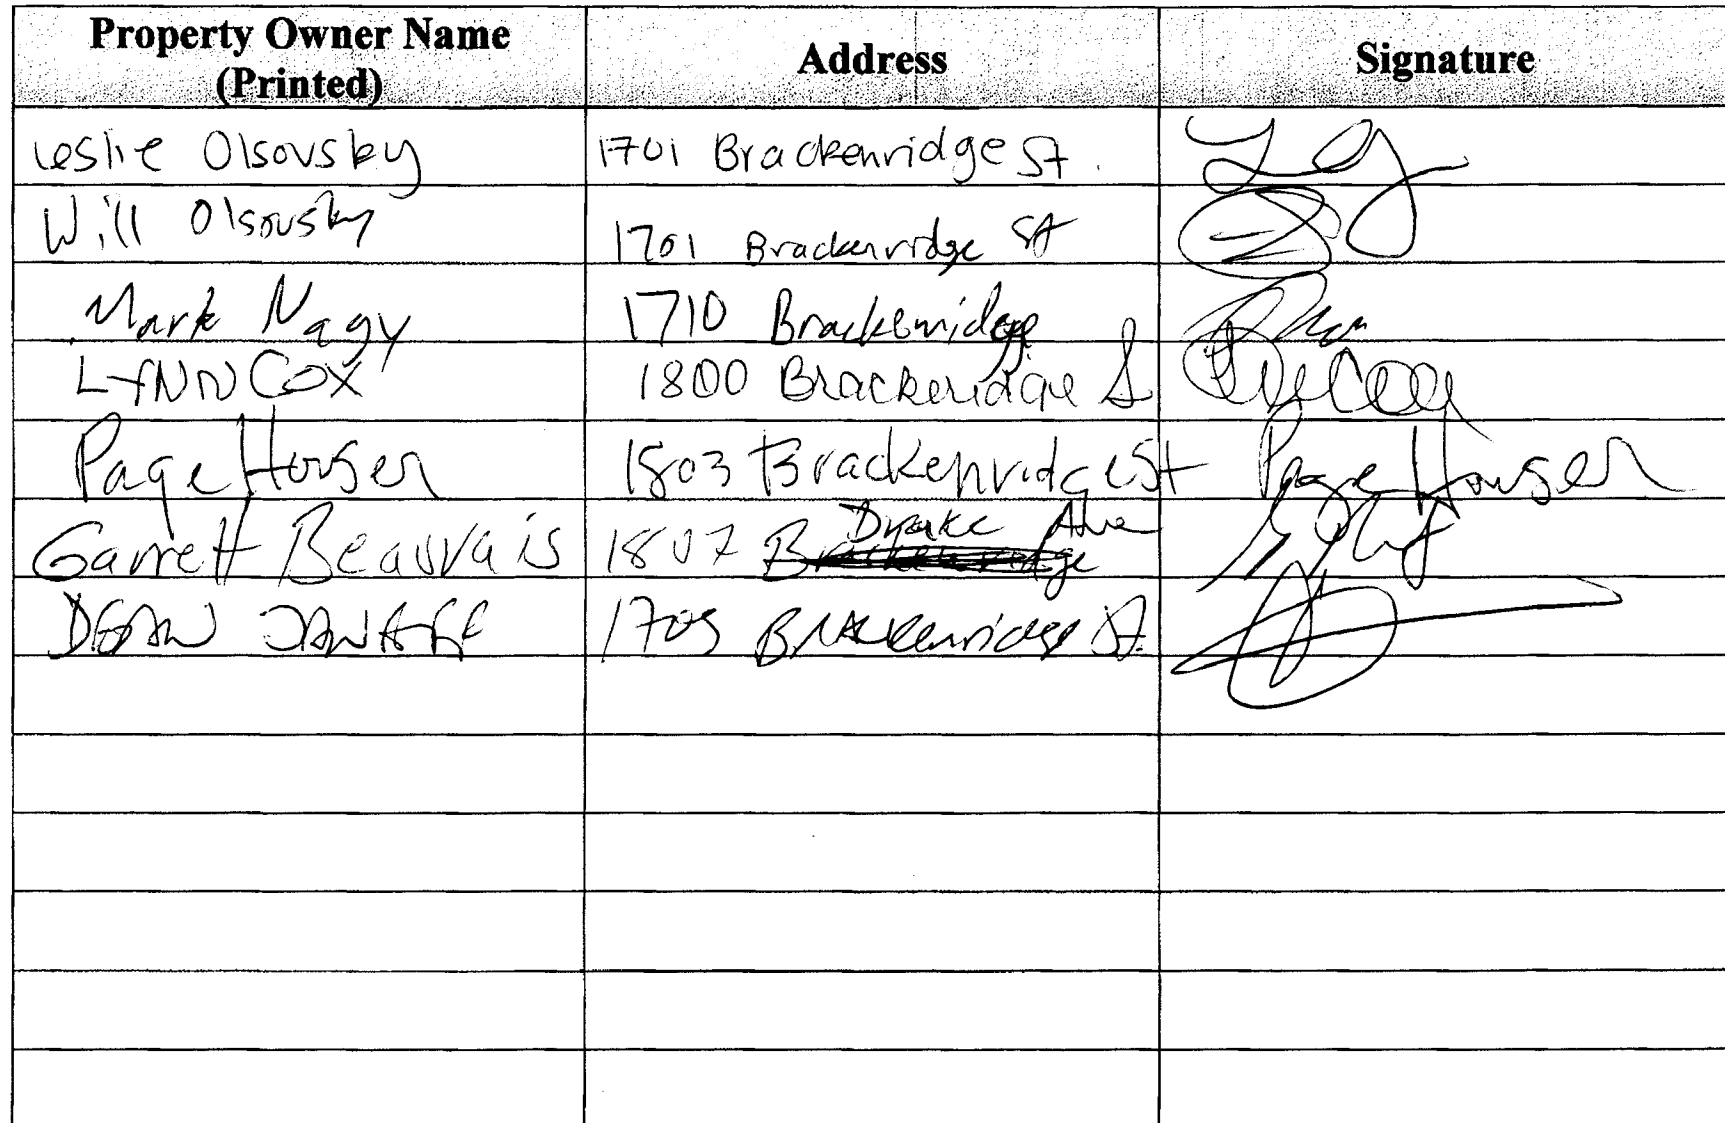 Property Owner Name (Printed) Address Signature
Leslie Olsovsky 1701 Brackenridge St.
Will Olsovsky 1701 Brackenridge St
Mark Nagy 1710 Brackenridge
LYNN COX 1800 Brackeridge St
Page Houser 1803 Brackenridge St Page Houser
Garrett Beauvais 1807 Brackenridge Drake Ave
DEAN 1705 Brackenridge St.